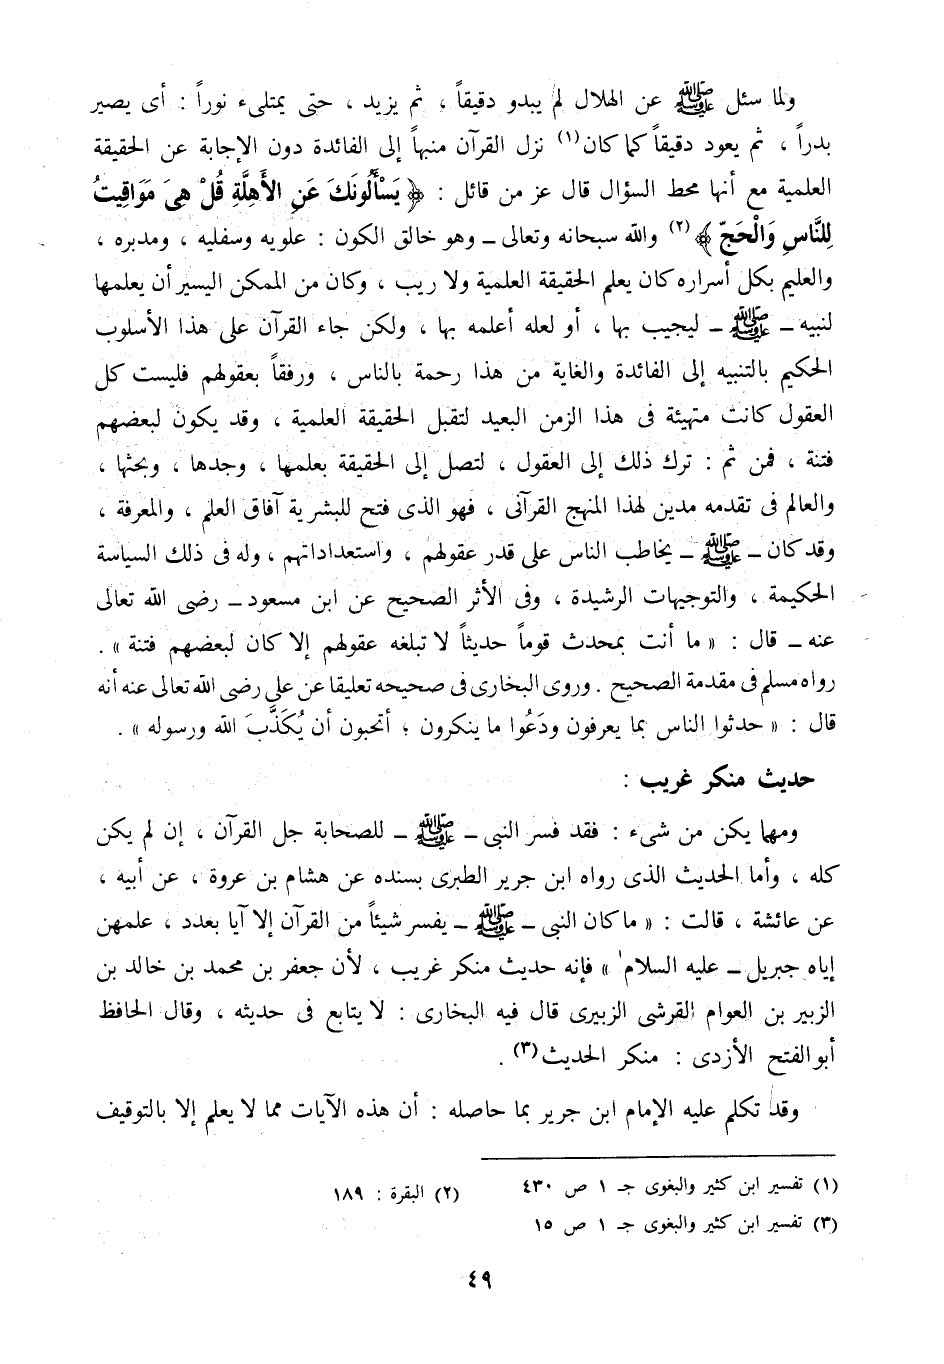 ولما سئل ﷺ عن الهلال لم يبدو دقيقاً ، ثم يزيد ، حتى يمتلىء نوراً : أى يصير
بدراً ، ثم يعود دقيقاً كما كان(١) نزل القرآن منبهاً إلى الفائدة دون الإجابة عن الحقيقة
العلمية مع أنها محط السؤال قال عز من قائل : ﴿ يَسْأَلُونَكَ عَنِ الأَهِلَّةِ قُلْ هِىَ مَوَاقِيتُ
لِلنَّاسِ وَالْحَجّ ﴾(٢) والله سبحانه وتعالى ــ وهو خالق الكون : علويه وسفليه ، ومدبره ،
والعليم بكل أسراره كان يعلم الحقيقة العلمية ولا ريب ، وكان من الممكن اليسير أن يعلمها
لنبيه ــ ﷺ ــ ليجيب بها ، أو لعله أعلمه بها ، ولكن جاء القرآن على هذا الأسلوب
الحكيم بالتنبيه إلى الفائدة والغاية من هذا رحمة بالناس ، ورفقاً بعقولهم فليست كل
العقول كانت متهيئة فى هذا الزمن البعيد لتقبل الحقيقة العلمية ، وقد يكون لبعضهم
فتنة ، فمن ثم : ترك ذلك إلى العقول ، لتصل إلى الحقيقة بعلمها ، وجدها ، وبحثها ،
والعالم فى تقدمه مدين لهذا المنهج القرآنى ، فهو الذى فتح للبشرية آفاق العلم ، والمعرفة ،
وقد كان ــ ﷺ ــ يخاطب الناس على قدر عقولهم ، واستعداداتهم ، وله فى ذلك السياسة
الحكيمة ، والتوجيهات الرشيدة ، وفى الأثر الصحيح عن ابن مسعود ــ رضى الله تعالى
عنه ــ قال : « ما أنت بمحدث قوماً حديثاً لا تبلغه عقولهم إلا كان لبعضهم فتنة » .
رواه مسلم فى مقدمة الصحيح . وروى البخارى فى صحيحه تعليقا عن على رضى الله تعالى عنه أنه
قال : « حدثوا الناس بما يعرفون ودَعُوا ما ينكرون ؛ أتحبون أن يُكَذَّبَ الله ورسوله » .
حديث منكر غريب :
ومهما يكن من شىء : فقد فسر النبى ــ ﷺ ــ للصحابة جل القرآن ، إن لم يكن
كله ، وأما الحديث الذى رواه ابن جرير الطبرى بسنده عن هشام بن عروة ، عن أبيه ،
عن عائشة ، قالت : « ما كان النبى ــ ﷺ ــ يفسر شيئاً من القرآن إلا آيا بعدد ، علمهن
إياه جبريل ــ عليه السلام » فإنه حديث منكر غريب ، لأن جعفر بن محمد بن خالد بن
الزبير بن العوام القرشى الزبيرى قال فيه البخارى : لا يتابع فى حديثه ، وقال الحافظ
أبو الفتح الأزدى : منكر الحديث(٣) .
وقد تكلم عليه الإمام ابن جرير بما حاصله : أن هذه الآيات مما لا يعلم إلا بالتوقيف
(١) تفسير ابن كثير والبغوى جـ ١ ص ٤٣٠ (٢) البقرة : ١٨٩
(٣) تفسير ابن كثير والبغوى جـ ١ ص ١٥
٤٩